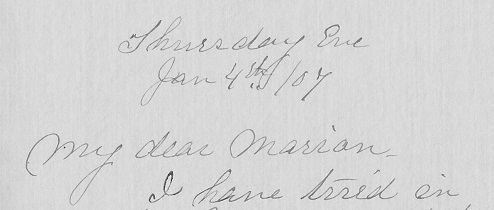 Thursday Eve
Jan 4th/07
My dear Marian -
I have tried in